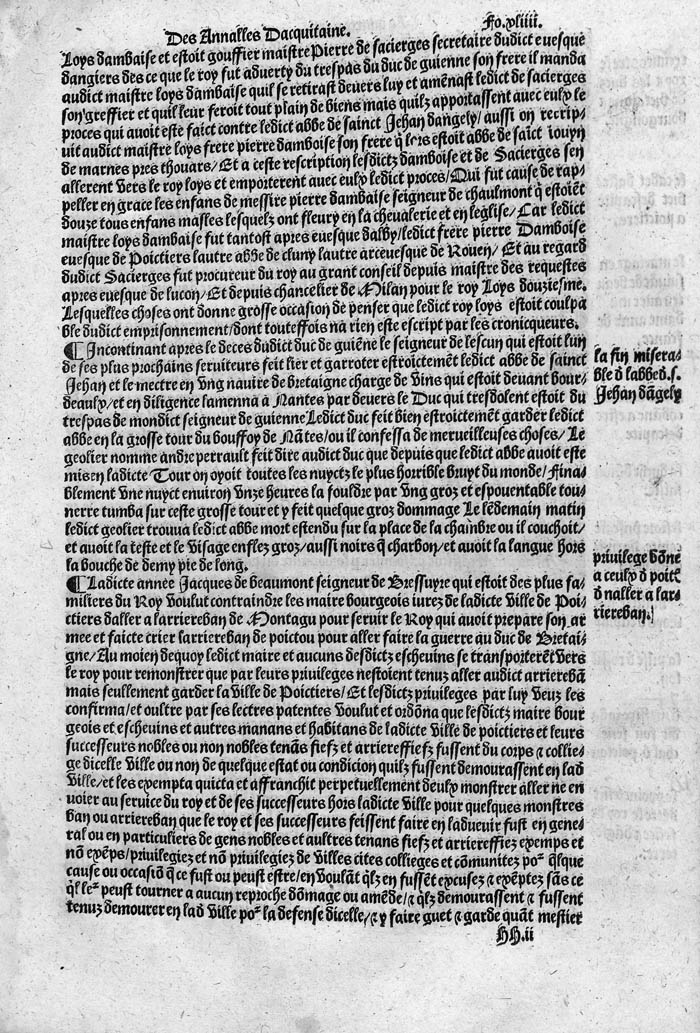 Des Annalles Dacquitaine.
Fo.xliiii.
Loys dambaise et estoit gouffier maistre Pierre de sacierges secretaire dudict euesque
dangiers des ce que le roy fut aduerty du trespas du duc de guienne son frere il manda
audict maistre loys dambaise quil se retirast deuers luy et amenast ledict de sacierges
son greffier et quil leur feroit tout plain de biens mais quilz apportassent auec eulx le
proces qui auoit este faict contre ledict abbe de sainct Jehan dangely/ aussi on rescrip-
uit audict maistre loys frere pierre damboise son frere q̃ lors estoit abbe de saĩct iouyn
de marnes pres thouars/ Et a ceste rescription lesdictz damboise et de Sacierges sen
allerent vers le roy loys et emporterent auec eulx ledict proces/ Qui fut cause de rap-
peller en grace les enfans de messire pierre dambaise seigneur de chaulmont q̃ estoiẽt
douze tous enfans masles lesquelz ont fleury en la cheualerie et en leglise/ Car ledict
maistre loys dambaise fut tantost apres euesque dalby/ ledict frere pierre Damboise
euesque de Poictiers lautre abbe de cluny lautre arceuesque de Rouen/ Et au regard
dudict Sacierges fut procureur du roy au grant conseil depuis maistre des requestes
apres euesque de lucon/ Et depuis chancelier de Milan pour le roy Loys douziesme.
Lesquelles choses ont donne grosse occasion de penser que ledict roy loys estoit coulpa
ble dudict emprisonnement/ dont touteffois na rien este escript par les cronicqueurs.
¶ Incontinant apres le deces dudict duc de guiẽne le seigneur de lescun qui estoit lun
de ses plus prochains seruiteurs feit lier et garroter estroictemẽt ledict abbe de sainct
Jehan et le mectre en vng nauire de bretaigne charge de vins qui estoit deuant bour-
deaulx/ et en diligence lamenna a Nantes par deuers le Duc qui tresdolent estoit du
trespas de mondict seigneur de guienne Ledict duc feit bien estroictemẽt garder ledict
abbe en la grosse tour du bouffoy de Nãtes/ ou il confessa de merueilleuses choses/ Le
geolier nomme andre perrault feit dire audict duc que depuis que ledict abbe auoit este
mis en ladicte Tour on oyoit toutes les nuyctz le plus horrible bruyt du monde/ fina-
blement vne nuyct enuiron vnze heures la fouldre par vng groz et espouentable tou-
nerre tumba sur ceste grosse tour et y feit quelque groz dommage Le lẽdemain matin
ledict geolier trouua ledict abbe mort estendu sur la place de la chambre ou il couchoit/
et auoit la teste et le visage enflez groz/ aussi noirs q̃ charbon/ et auoit la langue hors
la bouche de demy pie de long.
¶ Ladicte annee Jacques de beaumont seigneur de Bressuyre qui estoit des plus fa-
miliers du Roy voulut contraindre les maire bourgeois iurez de ladicte ville de Poi-
ctiers daller a larriereban de Montagu pour seruir le Roy qui auoit prepare son ar
mee et faicte crier larriereban de poictou pour aller faire la guerre au duc de Bretai-
gne/ Au moien dequoy ledict maire et aucuns desdictz escheuins se transporterẽt vers
le roy pour remonstrer que par leurs priuileges nestoient tenuz aller audict arrierebã
mais seullement garder la ville de Poictiers/ Et lesdictz priuileges par luy veuz les
confirma/ et oultre par ses lectres patentes voulut et ordõna que lesdictz maire bour
geois et escheuins et autres manans et habitans de ladicte ville de poictiers et leurs
successeurs nobles ou non nobles tenãs fiefz et arriereffiefz fussent du corps & collie-
ge dicelle ville ou non de quelque estat ou condicion quilz fussent demourassent en lad
ville/ et les exempta quicta et affranchit perpetuellement deulx monstrer aller ne en
voier au seruice du roy et de ses successeurs hors ladicte ville pour quelques monstres
ban ou arriereban que le roy et ses successeurs feissent faire en laduenir fust en gene-
ral ou en particuliers de gens nobles et aultres tenans fiefz et arriereffiez exemps et
nõ exẽps/ priuilegiez et nõ priuilegiez de villes cites collieges et cõmunitez poʳ q̃lque
cause ou occasiõ q̃ ce fust ou peust estre/ en voulãt q̃lz en fussẽt excusez & exẽptez sãs ce
q̃l leʳ peust tourner a aucun reproche dõmage ou amẽde/ & q̃lz demourassent & fussent
tenuz demourer en lad ville poʳ la defense dicelle/ & y faire guet & garde quãt mestier
HH.ii
la fin misera-
ble d̃ labbe d̃.s.
Jehan dãgely
priuilege dõne
a ceulx d̃ poitʳˢ
d̃ naller a lar-
riereban.